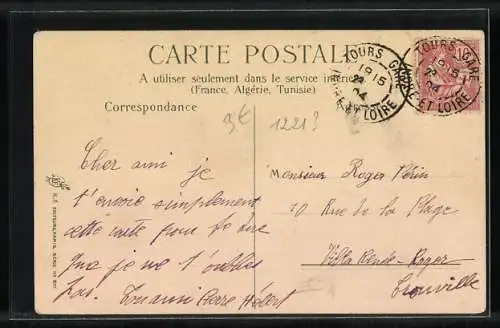 CARTE POSTALE
A utiliser seulement dans le service intérieur
(France, Algérie, Tunisie)
Correspondance
9€ 12213
TOURS GARE
1915
22
24
INDRE ET LOIRE
TOURS GARE
1915
24
ET LOIRE
10
Cher ami je
t'envoie simplement
cette carte pour te dire
que je ne t'oublies
pas. Ton ami Pierre Hébert
Monsieur Roger Périn
10 Rue de la Plage
Villa Roger
Trouville